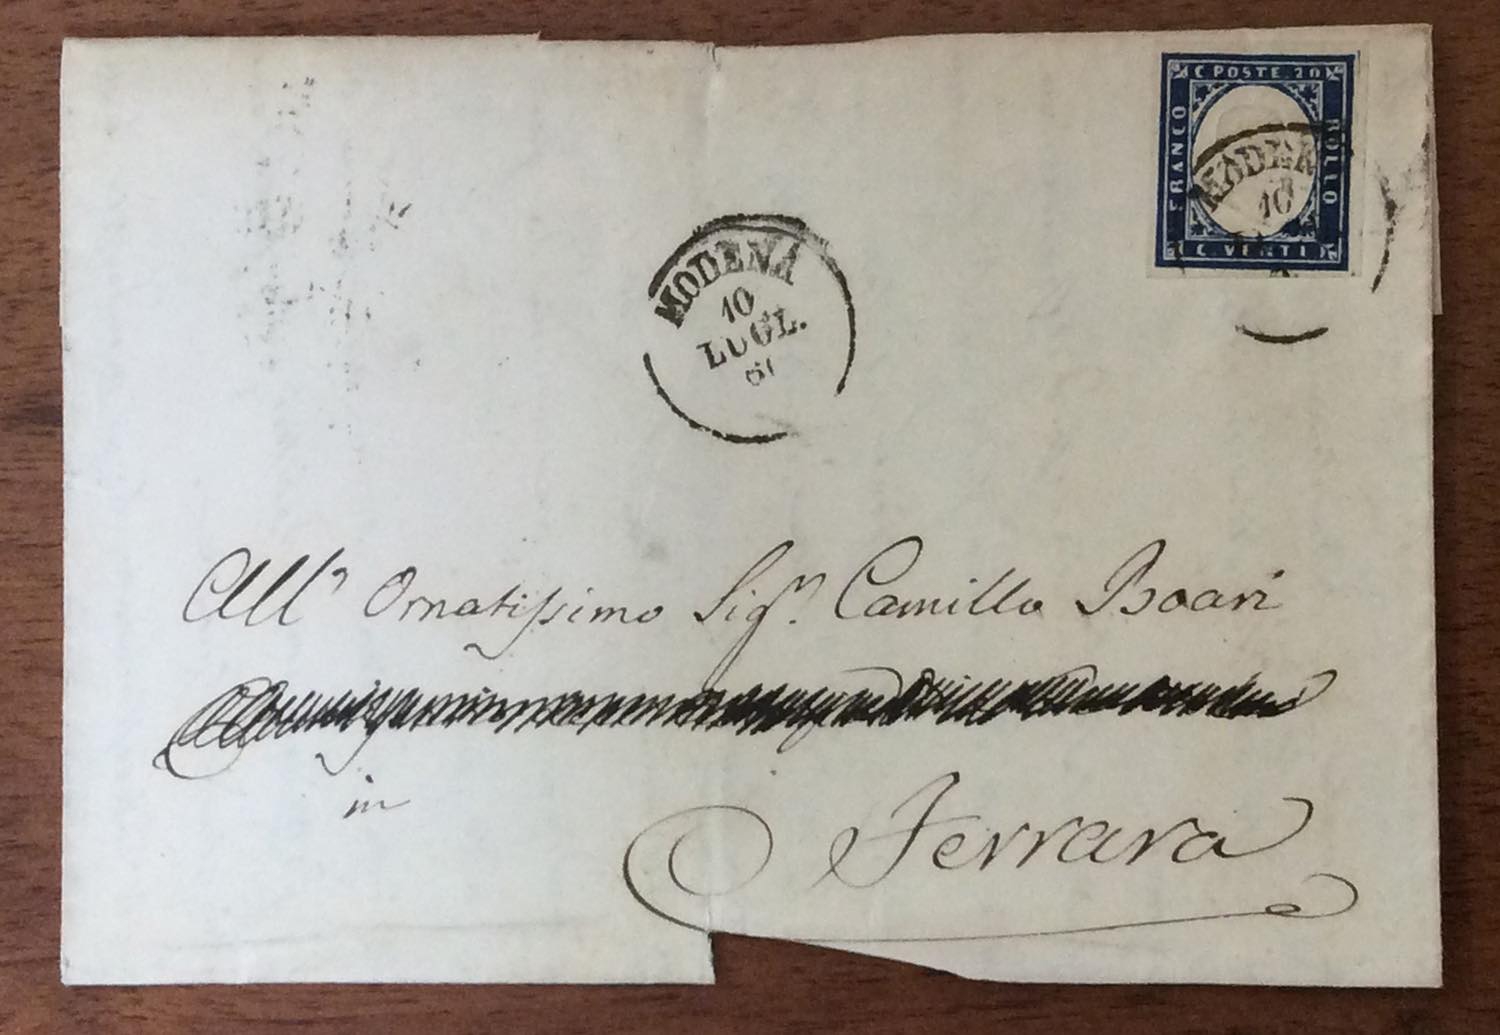 C POSTE 20
FRANCO
BOLLO
C. VENTI
MODENA
10
MODENA
10
LUGL.
61
All' Ornatissimo Sigr. Camillo Boari
in
Ferrara